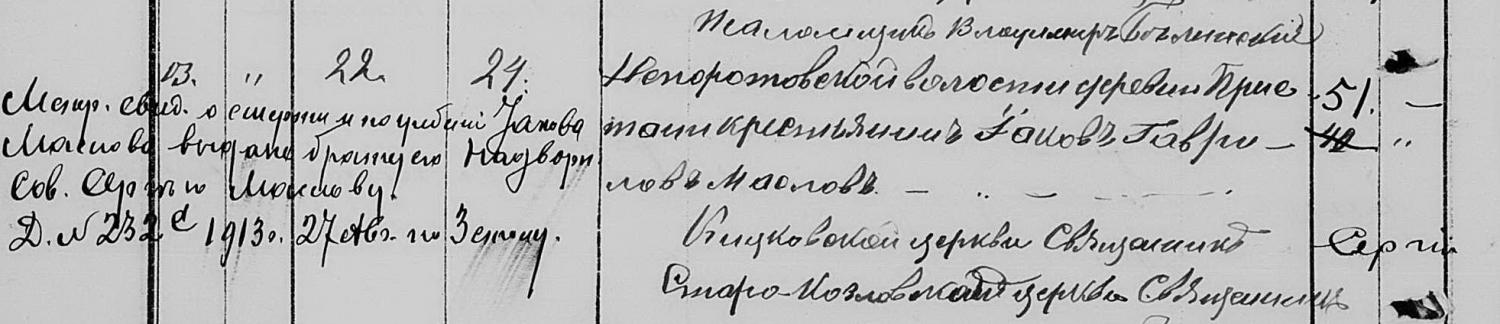 Псаломщикъ Владимиръ Бѣлинскій
13. " 22. 24.
волости деревни Прис- 51. —
тани крестьянинъ Іаковъ Гаври- 42 "
ловъ Масловъ. — " —
Метр. свид. о смерти и погребеніи Іакова
Маслова выдано брату его Надворн.
Сов. Сергѣю Маслову.
Д. № 232 1913 г. 27 Авг. по
церкви Священникъ Сергій
Старо-Козловской церкви Священникъ